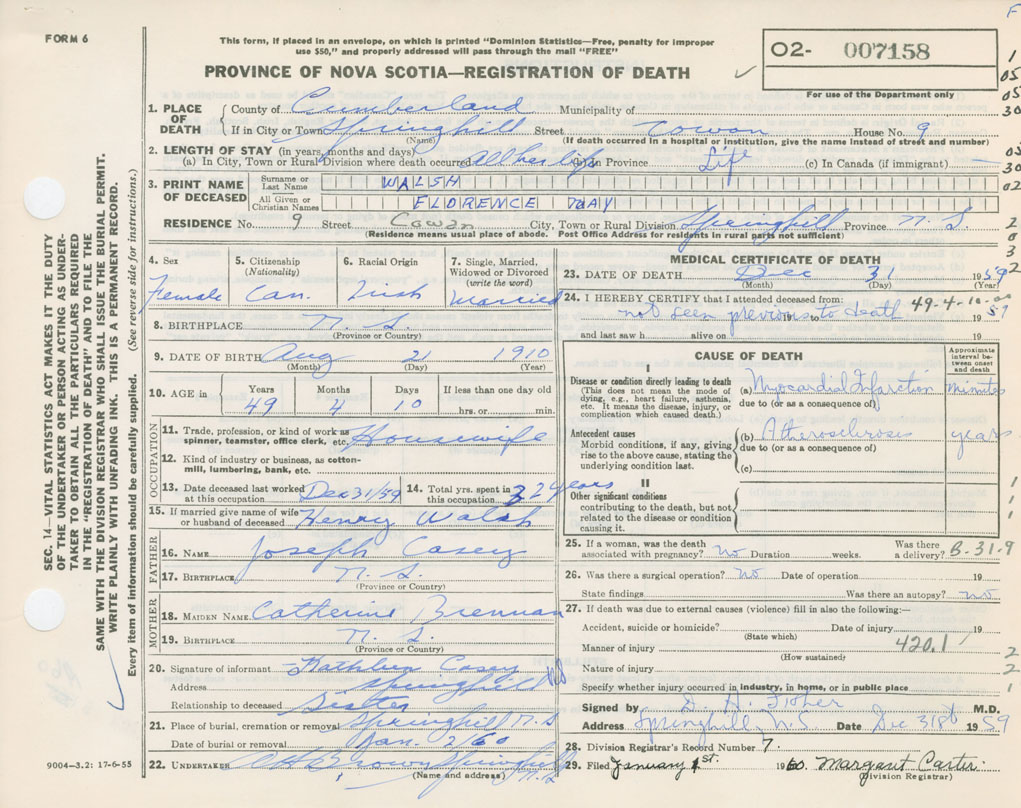 FORM 6
This form, if placed in an envelope, on which is printed "Dominion Statistics—Free, penalty for improper
use $50," and properly addressed will pass through the mail "FREE"
PROVINCE OF NOVA SCOTIA—REGISTRATION OF DEATH
02- 007158
For use of the Department only
1. PLACE OF DEATH { County of Cumberland Municipality of
If in City or Town Springhill Street Cowan House No. 9
(Name) (If death occurred in a hospital or institution, give the name instead of street and number)
2. LENGTH OF STAY (in years, months and days)
(a) In City, Town or Rural Division where death occurred all her life (b) in Province Life (c) In Canada (if immigrant)
3. PRINT NAME OF DECEASED { Surname or Last Name WALSH
All Given or Christian Names FLORENCE MAY
RESIDENCE No. 9 Street Cowan City, Town or Rural Division Springhill Province N. S.
(Residence means usual place of abode. Post Office Address for residents in rural parts not sufficient)
4. Sex Female
5. Citizenship (Nationality) Can.
6. Racial Origin Irish
7. Single, Married, Widowed or Divorced (write the word) Married
8. BIRTHPLACE N. S.
(Province or Country)
9. DATE OF BIRTH Aug 21 1910
(Month) (Day) (Year)
10. AGE in { Years 49 Months 4 Days 10 If less than one day old
hrs. or min.
OCCUPATION
11. Trade, profession, or kind of work as spinner, teamster, office clerk, etc. Housewife
12. Kind of industry or business, as cotton-mill, lumbering, bank, etc.
13. Date deceased last worked at this occupation Dec 31/59
14. Total yrs. spent in this occupation 32 years
15. If married give name of wife or husband of deceased Henry Walsh
FATHER
16. NAME Joseph Casey
17. BIRTHPLACE N. S.
(Province or Country)
MOTHER
18. MAIDEN NAME Catherine Brennan
19. BIRTHPLACE N. S.
(Province or Country)
20. Signature of informant Kathleen Casey
Address Springhill NS
Relationship to deceased Sister
21. Place of burial, cremation or removal Springhill N. S
Date of burial or removal Jan. 2/60
22. UNDERTAKER Brown Springhill N. S.
(Name and address)
MEDICAL CERTIFICATE OF DEATH
23. DATE OF DEATH Dec 31 1959
(Month) (Day) (Year)
24. I HEREBY CERTIFY that I attended deceased from: 49-4-10
not seen previous to death 19 to 1959
and last saw h alive on 19
CAUSE OF DEATH
Approximate interval between onset and death
I
Disease or condition directly leading to death
(This does not mean the mode of dying, e.g., heart failure, asthenia, etc. It means the disease, injury, or complication which caused death.)
(a) Myocardial Infarction minutes
due to (or as a consequence of)
Antecedent causes
Morbid conditions, if any, giving rise to the above cause, stating the underlying condition last.
(b) Atherosclerosis years
due to (or as a consequence of)
(c)
II
Other significant conditions
contributing to the death, but not related to the disease or condition causing it.
25. If a woman, was the death associated with pregnancy? no Duration weeks. Was there a delivery? B-31-9
26. Was there a surgical operation? no Date of operation 19
State findings Was there an autopsy? no
27. If death was due to external causes (violence) fill in also the following:—
Accident, suicide or homicide? Date of injury 19
(State which)
Manner of injury 420.1
(How sustained)
Nature of injury
Specify whether injury occurred in industry, in home, or in public place
Signed by D. H. Fisher M.D.
Address Springhill, N. S. Date Dec 31st 1959
28. Division Registrar's Record Number 7.
29. Filed January 1st. 1960. Margaret Carter.
(Division Registrar)
9004—3.2: 17-6-55
SEC. 14—VITAL STATISTICS ACT MAKES IT THE DUTY
OF THE UNDERTAKER OR PERSON ACTING AS UNDER-
TAKER TO OBTAIN ALL THE PARTICULARS REQUIRED
IN THE "REGISTRATION OF DEATH" AND TO FILE THE
SAME WITH THE DIVISION REGISTRAR WHO SHALL ISSUE THE BURIAL PERMIT.
WRITE PLAINLY WITH UNFADING INK. THIS IS A PERMANENT RECORD.
Every item of information should be carefully supplied. (See reverse side for instructions.)